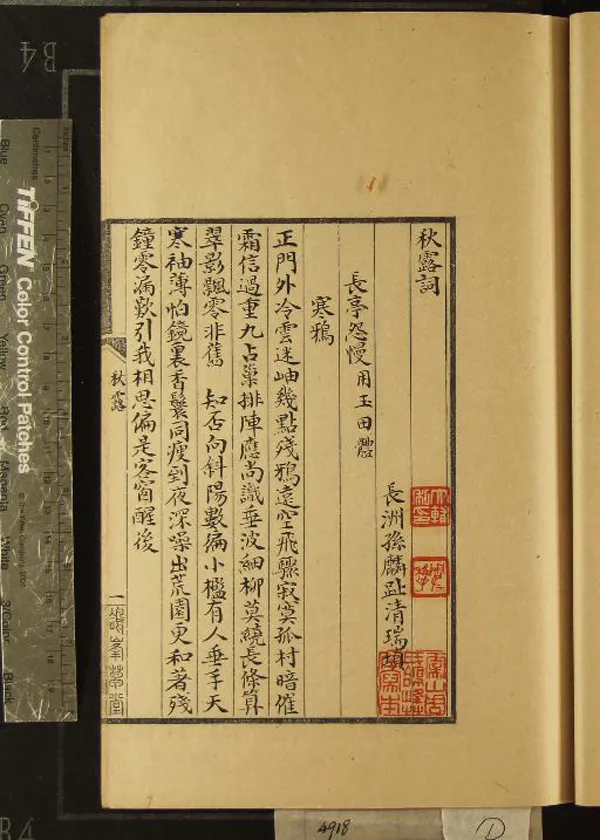 秋露詞
長洲孫麟趾清瑞
長亭怨慢 用玉田體
寒鴉
正門外冷雲迷岫幾點殘鴉遠空飛驟寂寞孤村暗催
霜信過重九占巢排陣應尚識垂波細柳莫繞長條算
翠影飄零非舊 知否向斜陽數徧小檻有人垂手天
寒袖薄怕鏡裏香鬟同瘦到夜深噪出荒園更和著殘
鐘零漏歎引我相思偏是客窗醒後
秋露
一
TIFFEN Color Control Patches
Centimetres
Blue
Cyan
Green
Yellow
Red
Magenta
White
3/Color
Black
B4
B4
4918
D